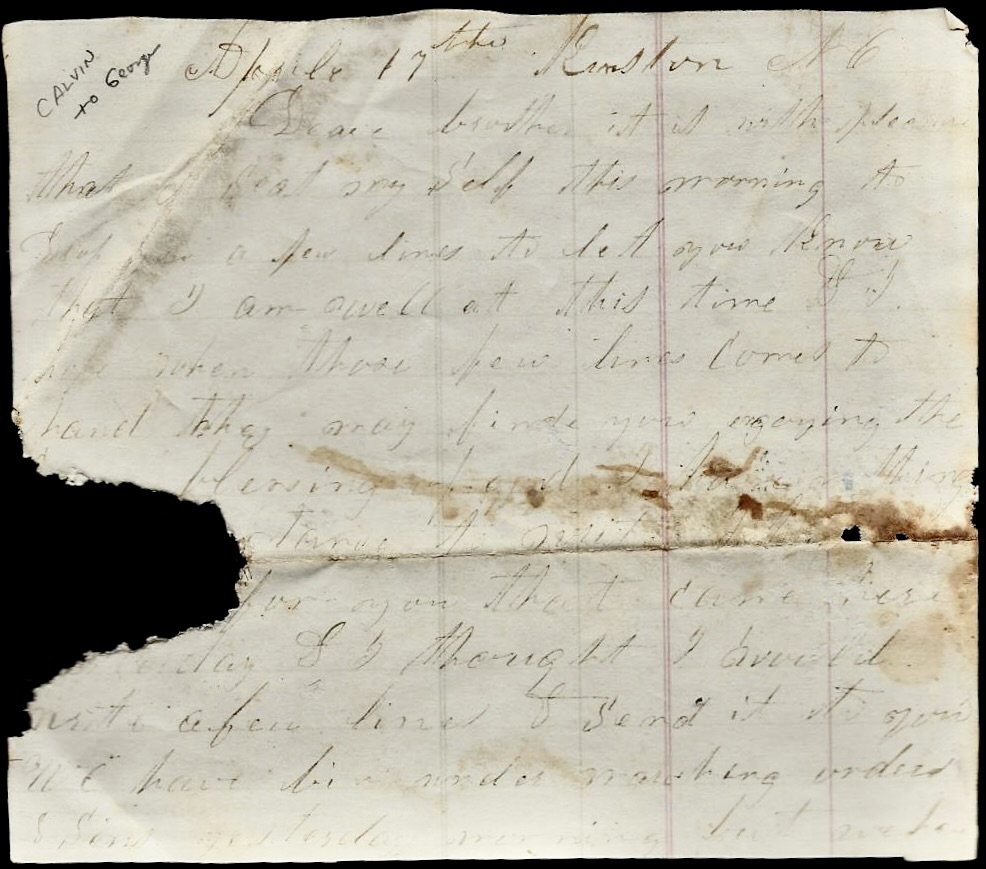 CALVIN
to George
Aprile 17th Kinston N C
Deare brother it is with pleasure
that I Seat my Self this morning to
a few lines to let you Know
that I am well at this time & I
hope when those few lines Comes to
hand they may find you the
blessing of god I have nothing
to write
for you that came here
& I thought I would
write a few lines & Send it to you
We have bin under marching orders
Sins yesterday morning but we have